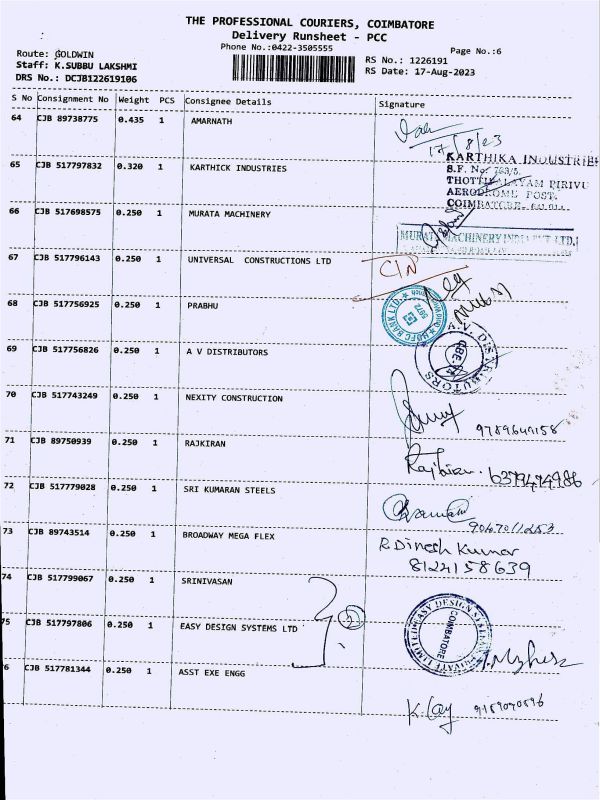 THE PROFESSIONAL COURIERS, COIMBATORE
Delivery Runsheet - PCC
Phone No.:0422-3505555
Page No.:6
Route: GOLDWIN
Staff: K.SUBBU LAKSHMI
DRS No.: DCJB122619106
RS No.: 1226191
RS Date: 17-Aug-2023
S No Consignment No Weight PCS Consignee Details Signature
64 CJB 89738775 0.435 1 AMARNATH
17/8/23
65 CJB 517797832 0.320 1 KARTHICK INDUSTRIES
KARTHIKA INDUSTRIES
S.F. No. 763/5.
THOTTIPALAYAM PIRIVU
AERODROME POST.
COIMBATORE.
66 CJB 517698575 0.250 1 MURATA MACHINERY
MURATA MACHINERY INDIA PVT LTD.
67 CJB 517796143 0.250 1 UNIVERSAL CONSTRUCTIONS LTD
C/N
68 CJB 517756925 0.250 1 PRABHU
HDFC BANK LTD.
69 CJB 517756826 0.250 1 A V DISTRIBUTORS
A.V. DISTRIBUTORS
CBE.
70 CJB 517743249 0.250 1 NEXITY CONSTRUCTION
9789649158
71 CJB 89750939 0.250 1 RAJKIRAN
Rajkiran. 6379474986
72 CJB 517779028 0.250 1 SRI KUMARAN STEELS
73 CJB 89743514 0.250 1 BROADWAY MEGA FLEX
R Dinesh Kumar
8124158639
74 CJB 517799067 0.250 1 SRINIVASAN
75 CJB 517797806 0.250 1 EASY DESIGN SYSTEMS LTD
EASY DESIGN SYSTEMS PRIVATE LIMITED
COIMBATORE
76 CJB 517781344 0.250 1 ASST EXE ENGG